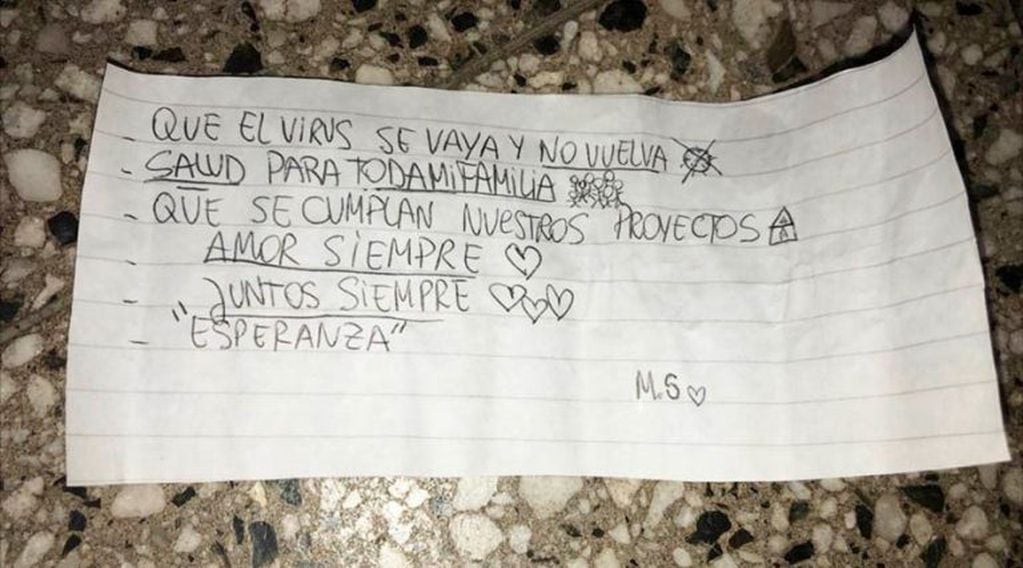 - QUE EL VIRUS SE VAYA Y NO VUELVA
- SALUD PARA TODA MI FAMILIA
- QUE SE CUMPLAN NUESTROS PROYECTOS
- AMOR SIEMPRE ♡
- JUNTOS SIEMPRE ♡♡♡
- "ESPERANZA"
M.S ♡